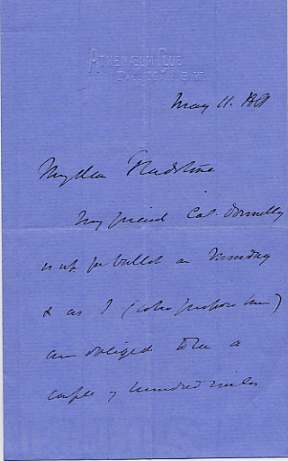 ATHENÆUM CLUB
PALL MALL
May 11. 18
My dear Gladstone
My friend Col. Donnelly
is up for ballot on Tuesday
& as I (who propose him)
am obliged to be a
couple of hundred miles